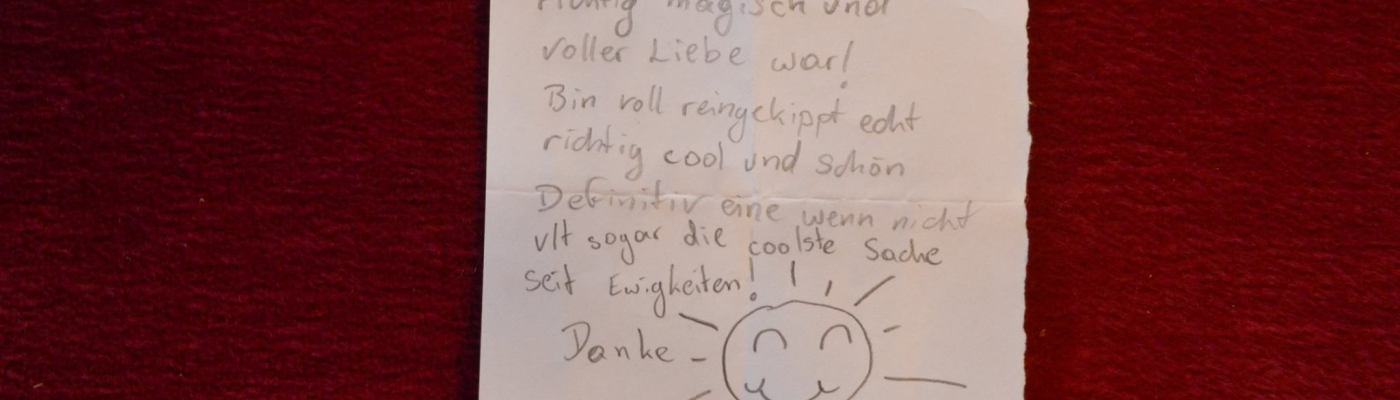 richtig magisch und
voller Liebe war!
Bin voll reingekippt echt
richtig cool und schön
Definitiv eine wenn nicht
vlt sogar die coolste Sache
seit Ewigkeiten!
Danke